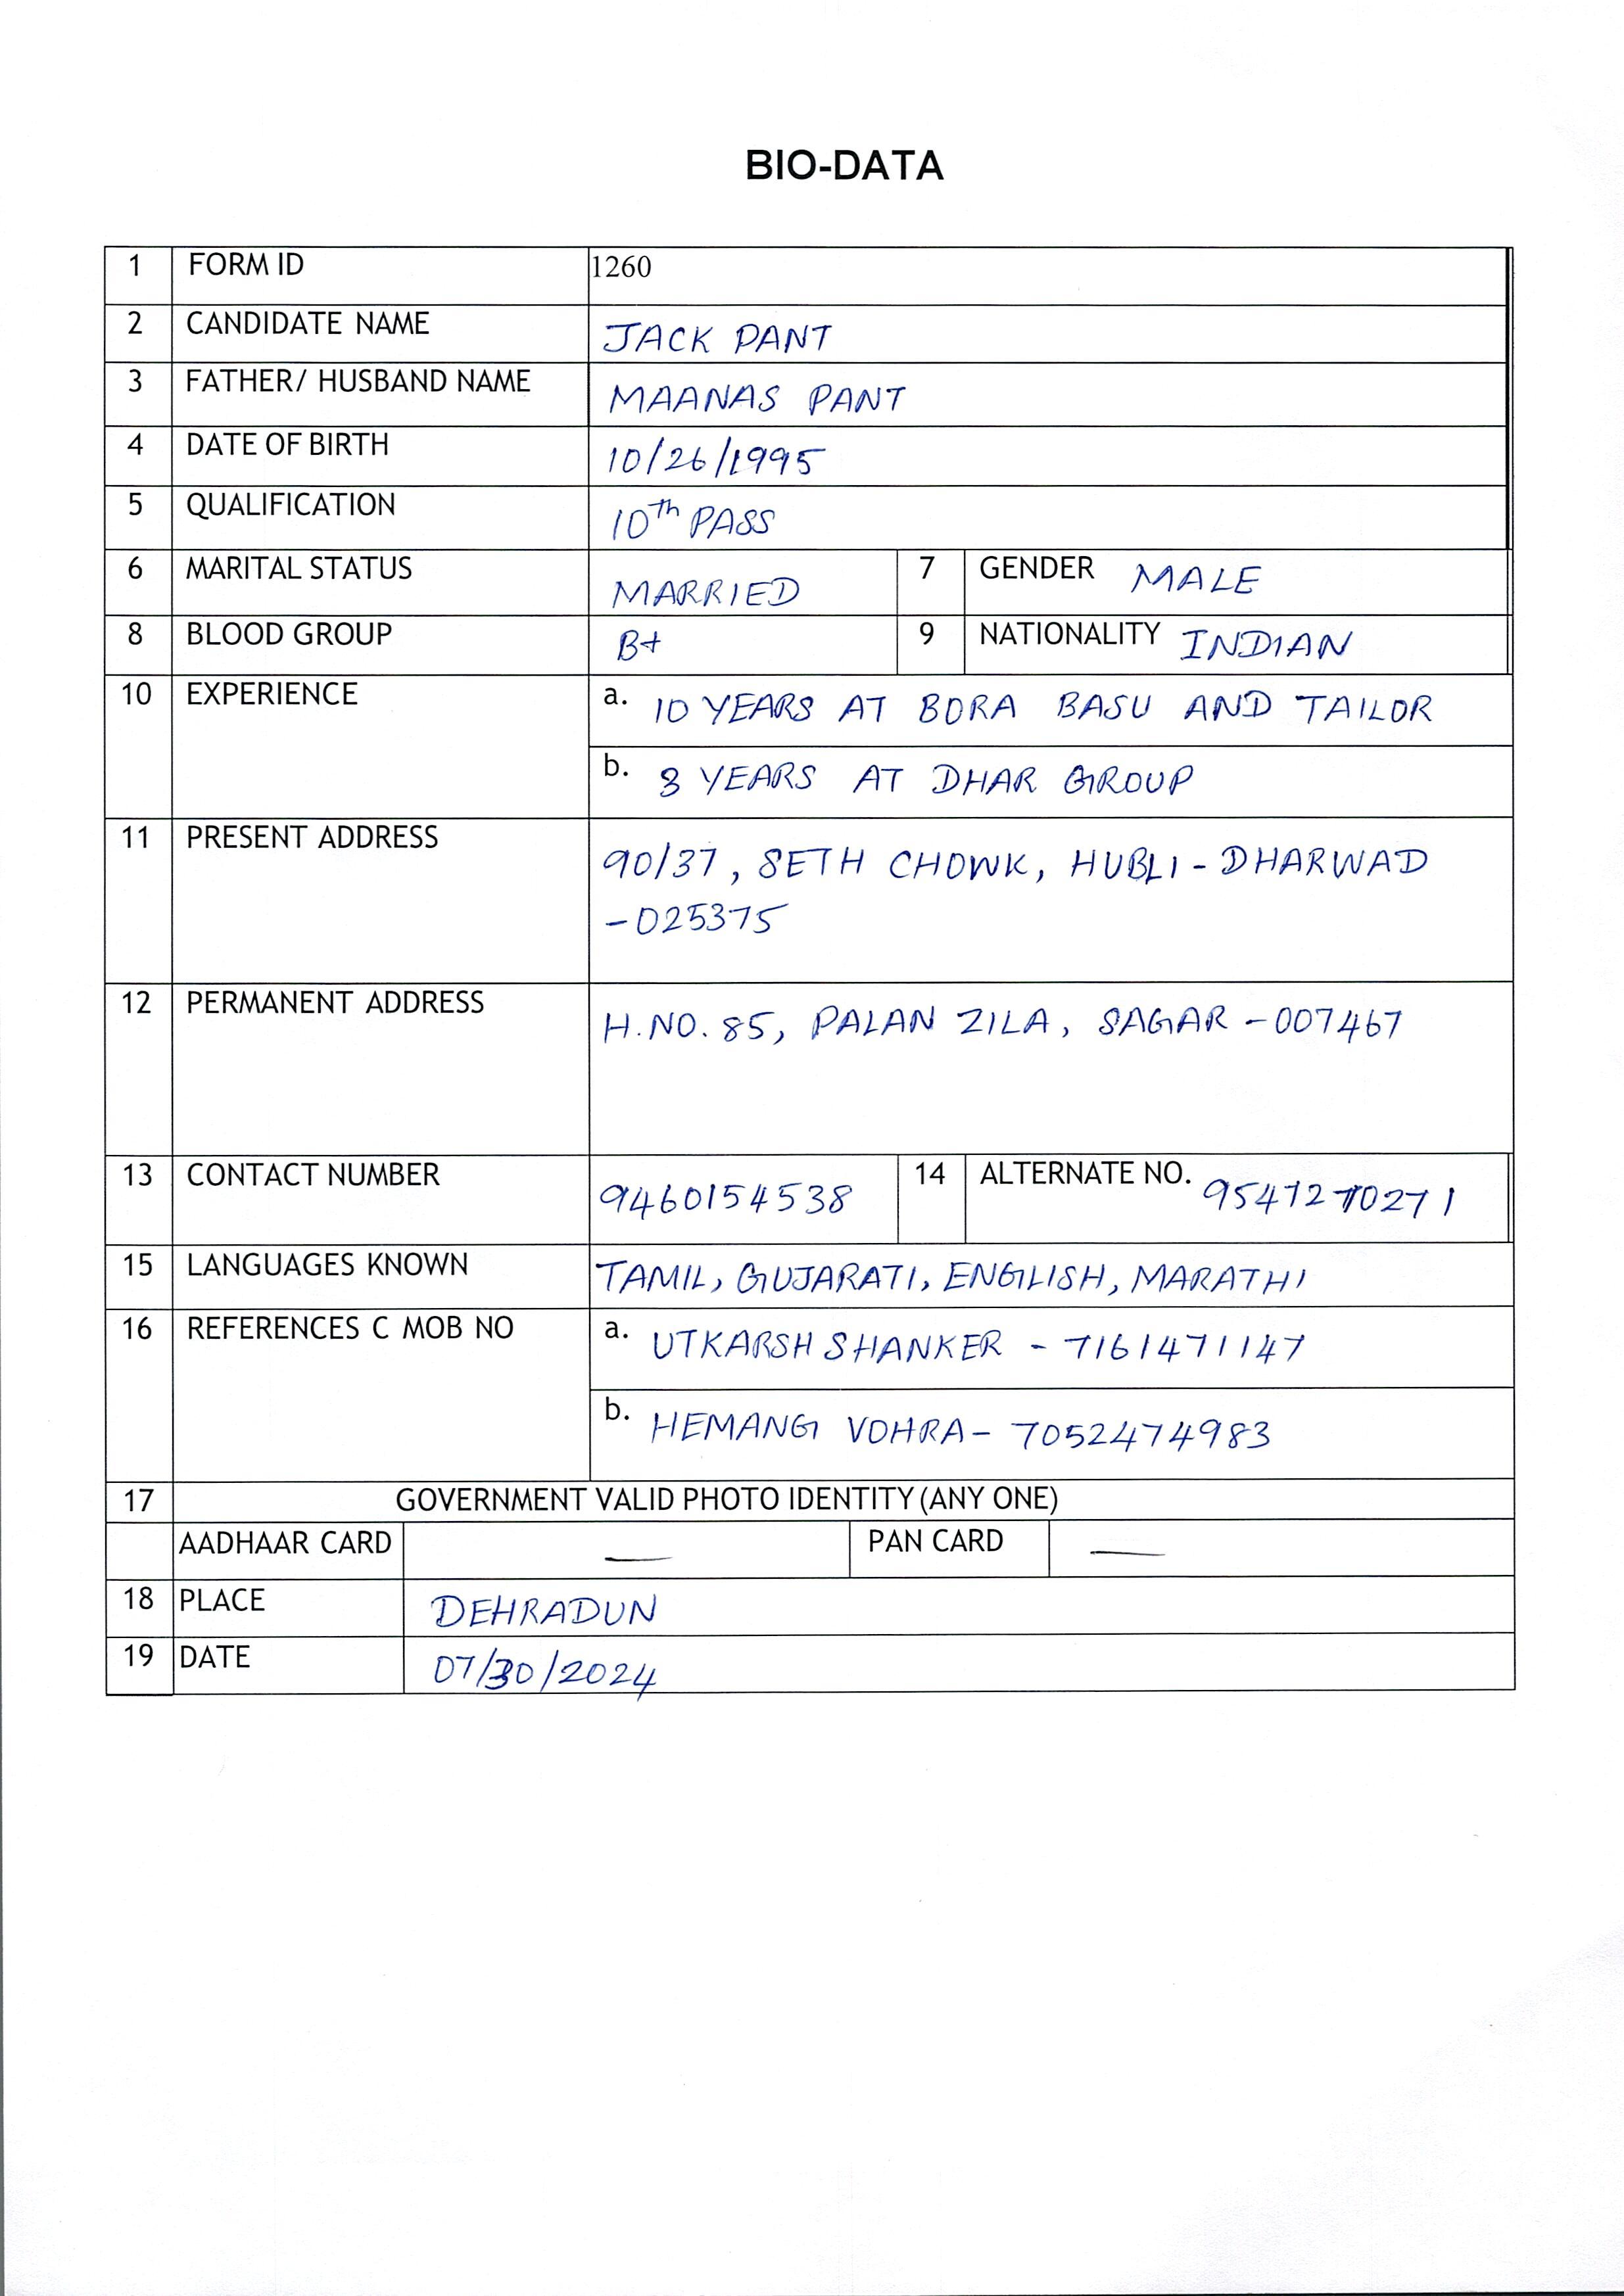 BIO-DATA
1 FORM ID 1260
2 CANDIDATE NAME JACK PANT
3 FATHER/ HUSBAND NAME MAANAS PANT
4 DATE OF BIRTH 10/26/1995
5 QUALIFICATION 10th PASS
6 MARITAL STATUS MARRIED 7 GENDER MALE
8 BLOOD GROUP B+ 9 NATIONALITY INDIAN
10 EXPERIENCE a. 10 YEARS AT BORA BASU AND TAILOR
b. 3 YEARS AT DHAR GROUP
11 PRESENT ADDRESS 90/37, SETH CHOWK, HUBLI-DHARWAD
-025375
12 PERMANENT ADDRESS H.NO. 85, PALAN ZILA, SAGAR -007467
13 CONTACT NUMBER 9460154538 14 ALTERNATE NO. 9547270271
15 LANGUAGES KNOWN TAMIL, GUJARATI, ENGLISH, MARATHI
16 REFERENCES C MOB NO a. UTKARSH SHANKER - 7161471147
b. HEMANG VOHRA- 7052474983
17 GOVERNMENT VALID PHOTO IDENTITY (ANY ONE)
AADHAAR CARD — PAN CARD —
18 PLACE DEHRADUN
19 DATE 07/30/2024